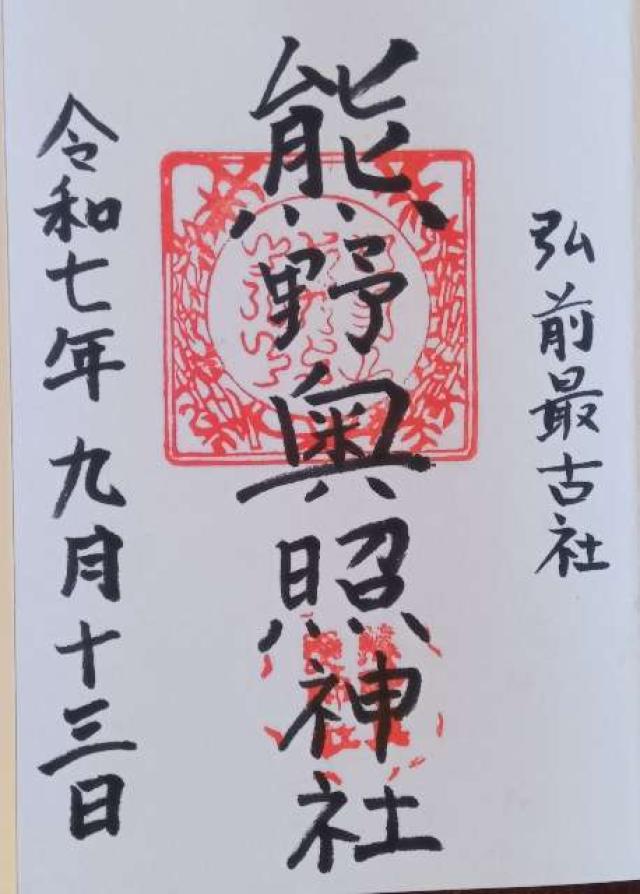 弘前最古社
熊野奥照神社
令和七年九月十三日